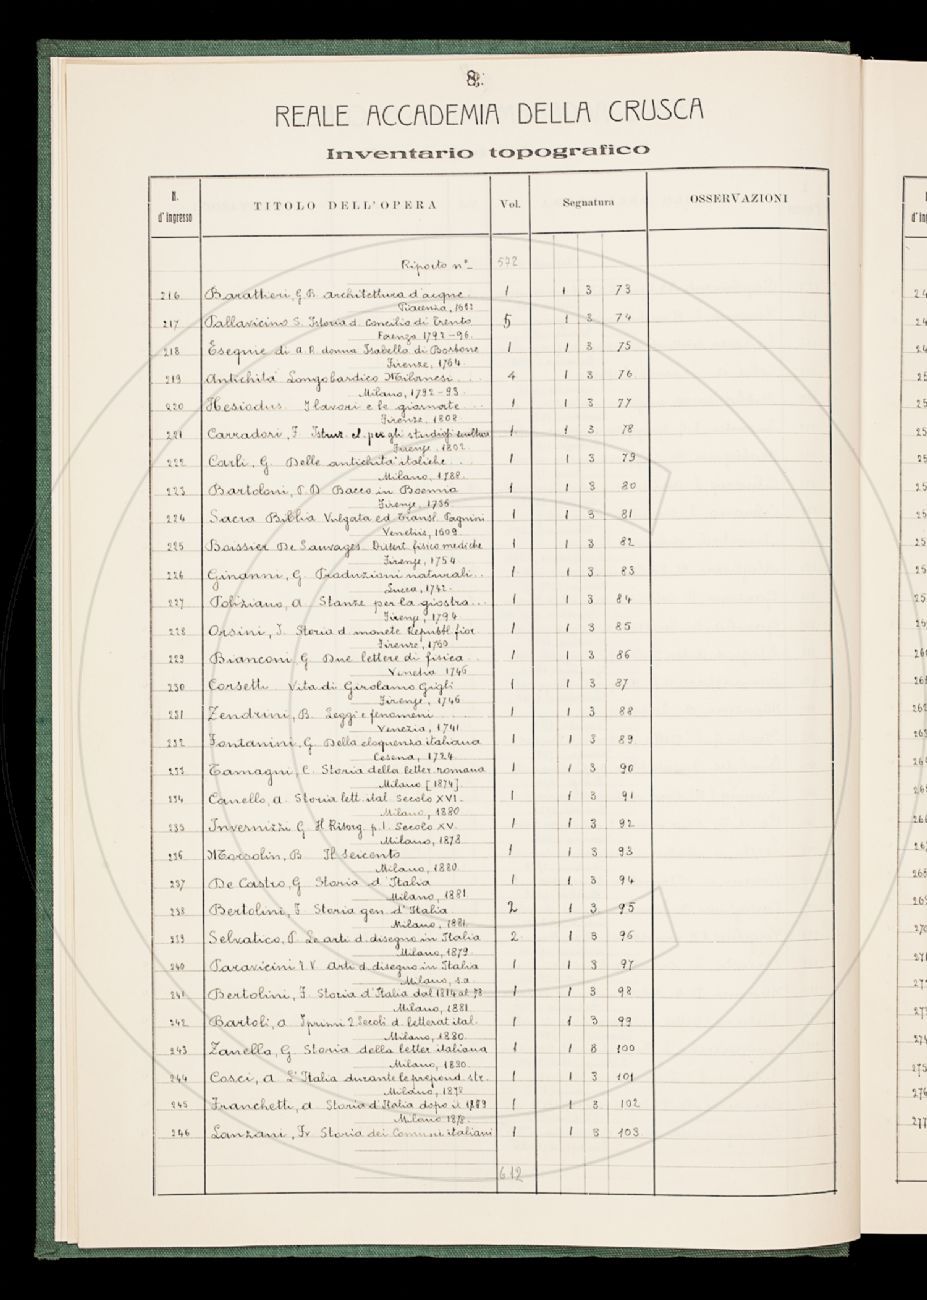 8.
REALE ACCADEMIA DELLA CRUSCA
Inventario topografico
N. d'ingresso TITOLO DELL'OPERA Vol. Segnatura OSSERVAZIONI
Riporto n° 572
216 Barattieri, G. B. Architettura d'acque. 1 1 3 73
Piacenza,
217 Pallavicino S. Istoria d. Concilio di Trento 5 1 3 74
Faenza 1792-96.
218 Esequie di A. R. donna Isabella di Borbone 1 1 3 75
Firenze, 1764.
219 Antichità Longobardico Milanesi... 4 1 3 76
Milano, 1792-93.
220 Hesiodus. I lavori e le giornate... 1 1 3 77
Firenze, 1808
221 Carradori, F. Istruz. el. per gli studiosi scultura 1 1 3 78
Firenze, 1802.
222 Carli, G. Delle antichità italiche... 1 1 3 79
Milano, 1788.
223 Bartoloni, P. D. Bacco in Boemia 1 1 3 80
Firenze, 1736.
224 Sacra Biblia Vulgata ed Transl. Pagnini 1 1 3 81
Venetiis, 1609.
225 Boissier De Sauvages Dissert. fisico mediche 1 1 3 82
Firenze, 1754
226 Ginanni, G. Produzioni naturali.. 1 1 3 83
Lucca, 1742.
227 Poliziano, A. Stanze per la giostra... 1 1 3 84
Firenze, 1794
228 Orsini, I. Storia d. monete Repubbl. fior. 1 1 3 85
Firenze, 1760
229 Bianconi, G. Due lettere di fisica.. 1 1 3 86
Venetia 1746
230 Corsetti Vita di Girolamo Gigli 1 1 3 87
Firenze, 1746
231 Zendrini, B. Leggi e fenomeni 1 1 3 88
Venezia, 1741
232 Fontanini, G. Della eloquenza italiana 1 1 3 89
Cesena, 1724
233 Tamagni, C. Storia della letter. romana 1 1 3 90
Milano [1874].
234 Canello, A. Storia lett. ital. Secolo XVI. 1 1 3 91
Milano, 1880
235 Invernizzi G. Il Risorg. p. I. Secolo XV. 1 1 3 92
Milano, 1878
236 Morsolin, B. Il Seicento 1 1 3 93
Milano, 1880.
237 De Castro, G. Storia d'Italia 1 1 3 94
Milano, 1881
238 Bertolini, F. Storia gen. d'Italia 2 1 3 95
Milano, 1881.
239 Selvatico, P. Le arti d. disegno in Italia 2 1 3 96
Milano, 1879
240 Paravicini T. V. Arti d. disegno in Italia 1 1 3 97
Milano, s.a
241 Bertolini, F. Storia d'Italia dal 1814 al 78 1 1 3 98
Milano, 1881
242 Bartoli, A. I primi 2 Secoli d. letterat. ital. 1 1 3 99
Milano, 1880.
243 Zanella, G. Storia della letter. italiana 1 1 3 100
Milano, 1880.
244 Cosci, A. L'Italia durante le prepond. str. 1 1 3 101
Milano, 1878
245 Franchetti, A. Storia d'Italia dopo il 1789 1 1 3 102
Milano 1878.
246 Lanzani, Fr. Storia dei Comuni italiani 1 1 3 103
612